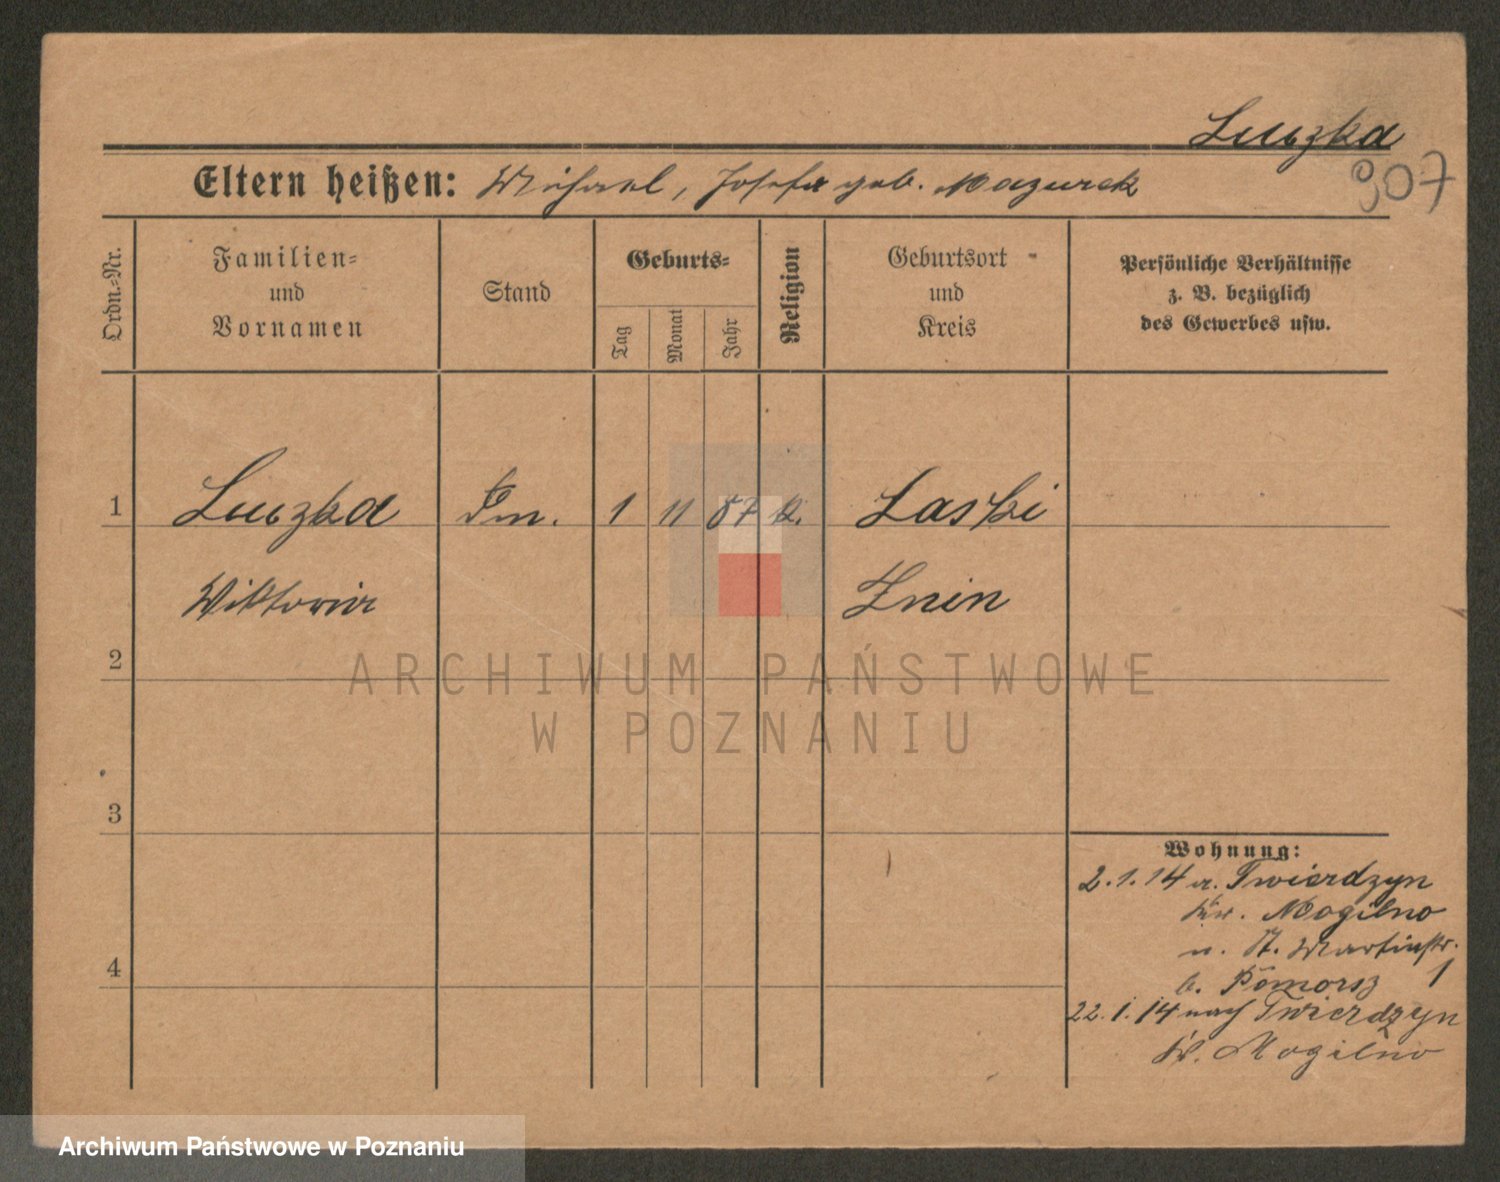 Luczka
307
Eltern heißen: Michael, Josefa geb. Mazurek
Ordn.-Nr.
Familien- und Vornamen
Stand
Geburts-
Tag
Monat
Jahr
Religion
Geburtsort und Kreis
Persönliche Verhältnisse
z. B. bezüglich
des Gewerbes usw.
1 Luczka 1 11 87 k. Laski
Wiktoria Znin
2
ARCHIWUM PAŃSTWOWE
W POZNANIU
3
Wohnung:
2.1.14 a. Twierdzyn
Kr. Mogilno
n. St. Martinstr. 1
4
b. Pomorsz
22.1.14 nach Twierdzyn
Kr. Mogilno
Archiwum Państwowe w Poznaniu